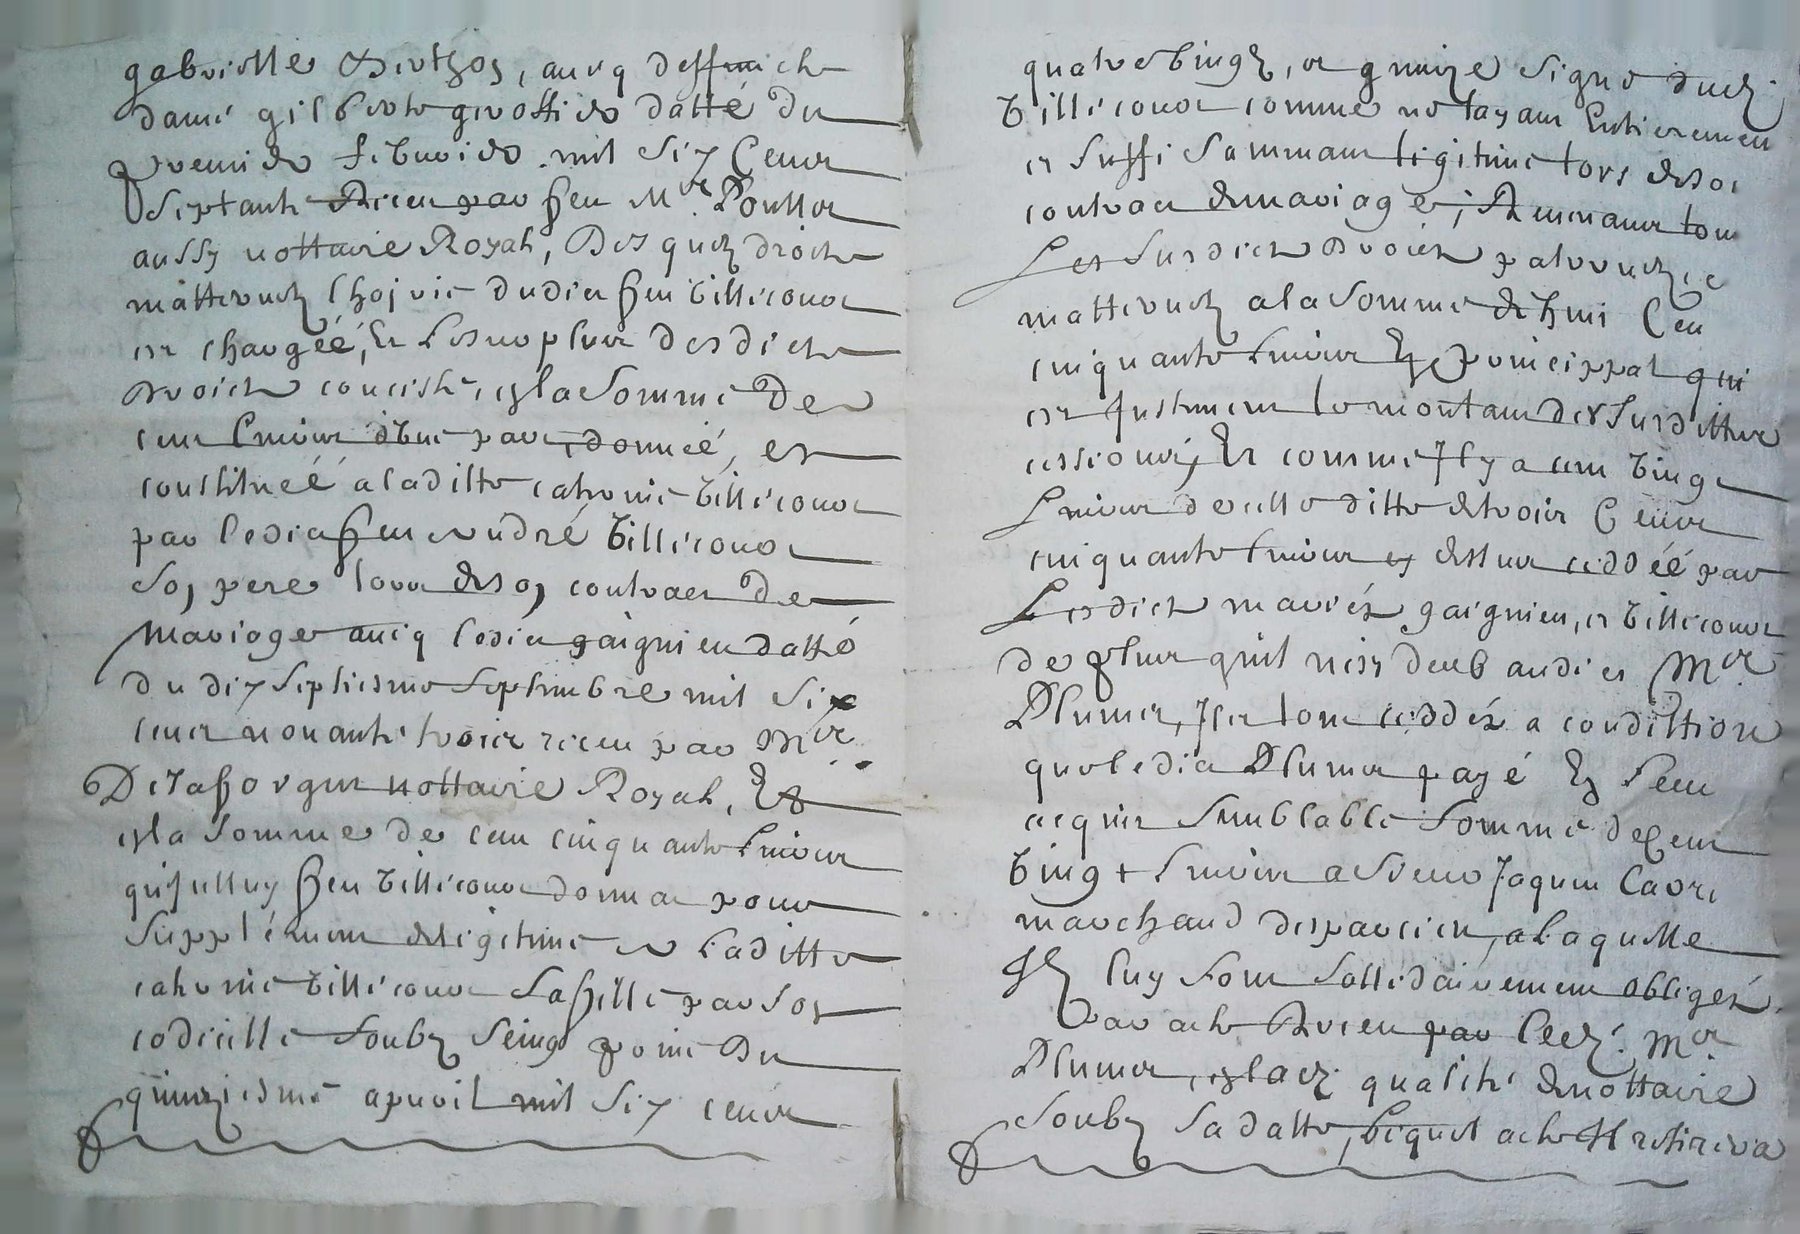 gabrielle Berthon, avecq deffuncte
dame gilberte giroffier datté du
premier febvrier mil six Cents
Septante Receu par feu Mr Poullet
aussy nottaire Royal, Desquelz droitz
matternelz l'hoirie dudict feu billicout
est chargéé, Et le surplus desdicts
droictz conciste en la somme De
cent livres d'une part, donnéé, et
constituéé a laditte catrinne billicout
par ledict feu André billicout
Son pere lors de son contract de
Mariage avecq ledict gaignieu datté
du dix Septiesme Septembre mil Six
cents nonante troix receu par Mre
Delaforgue nottaire Royal, Et
en la somme de cent cinquante livres
que feu billicout donna pour
supplément de legitime a laditte
catrinne billicout Sa fille par son
codicille soubz seing privé du
quinziesme apvril mil six cents
quatre vingtz, et quinze signé dudit
billicout comme ne l'ayant Entierement
et suffisamment legitimé lors de son
contract de mariage, Revenant tous
Les susdicts droictz paternelz, et
matternelz a la somme de huit Cent
cinquante livres En principal qui
est justement le montant des susdittes
cessions, Et comme Il y a cent vingt
Livres de cette ditte de trois Cents
cinquante livres cy dessus ceddéé par
Lesdicts mariés gaignieu, et billicout
de plus qu'il n'est deub audict Mre
Plumet, Il est tout ceddé a condittion
que ledict Plumet payé En leur
acquit semblable somme de cent
vingt livres a Sieur Jaques
marchand, a laquelle
Ilz luy sont sollidairement obligés
Par acte Receu par ledit Mre
Plumet, en lad. qualité de nottaire
soubz sa datte, lequel acte Il retirera